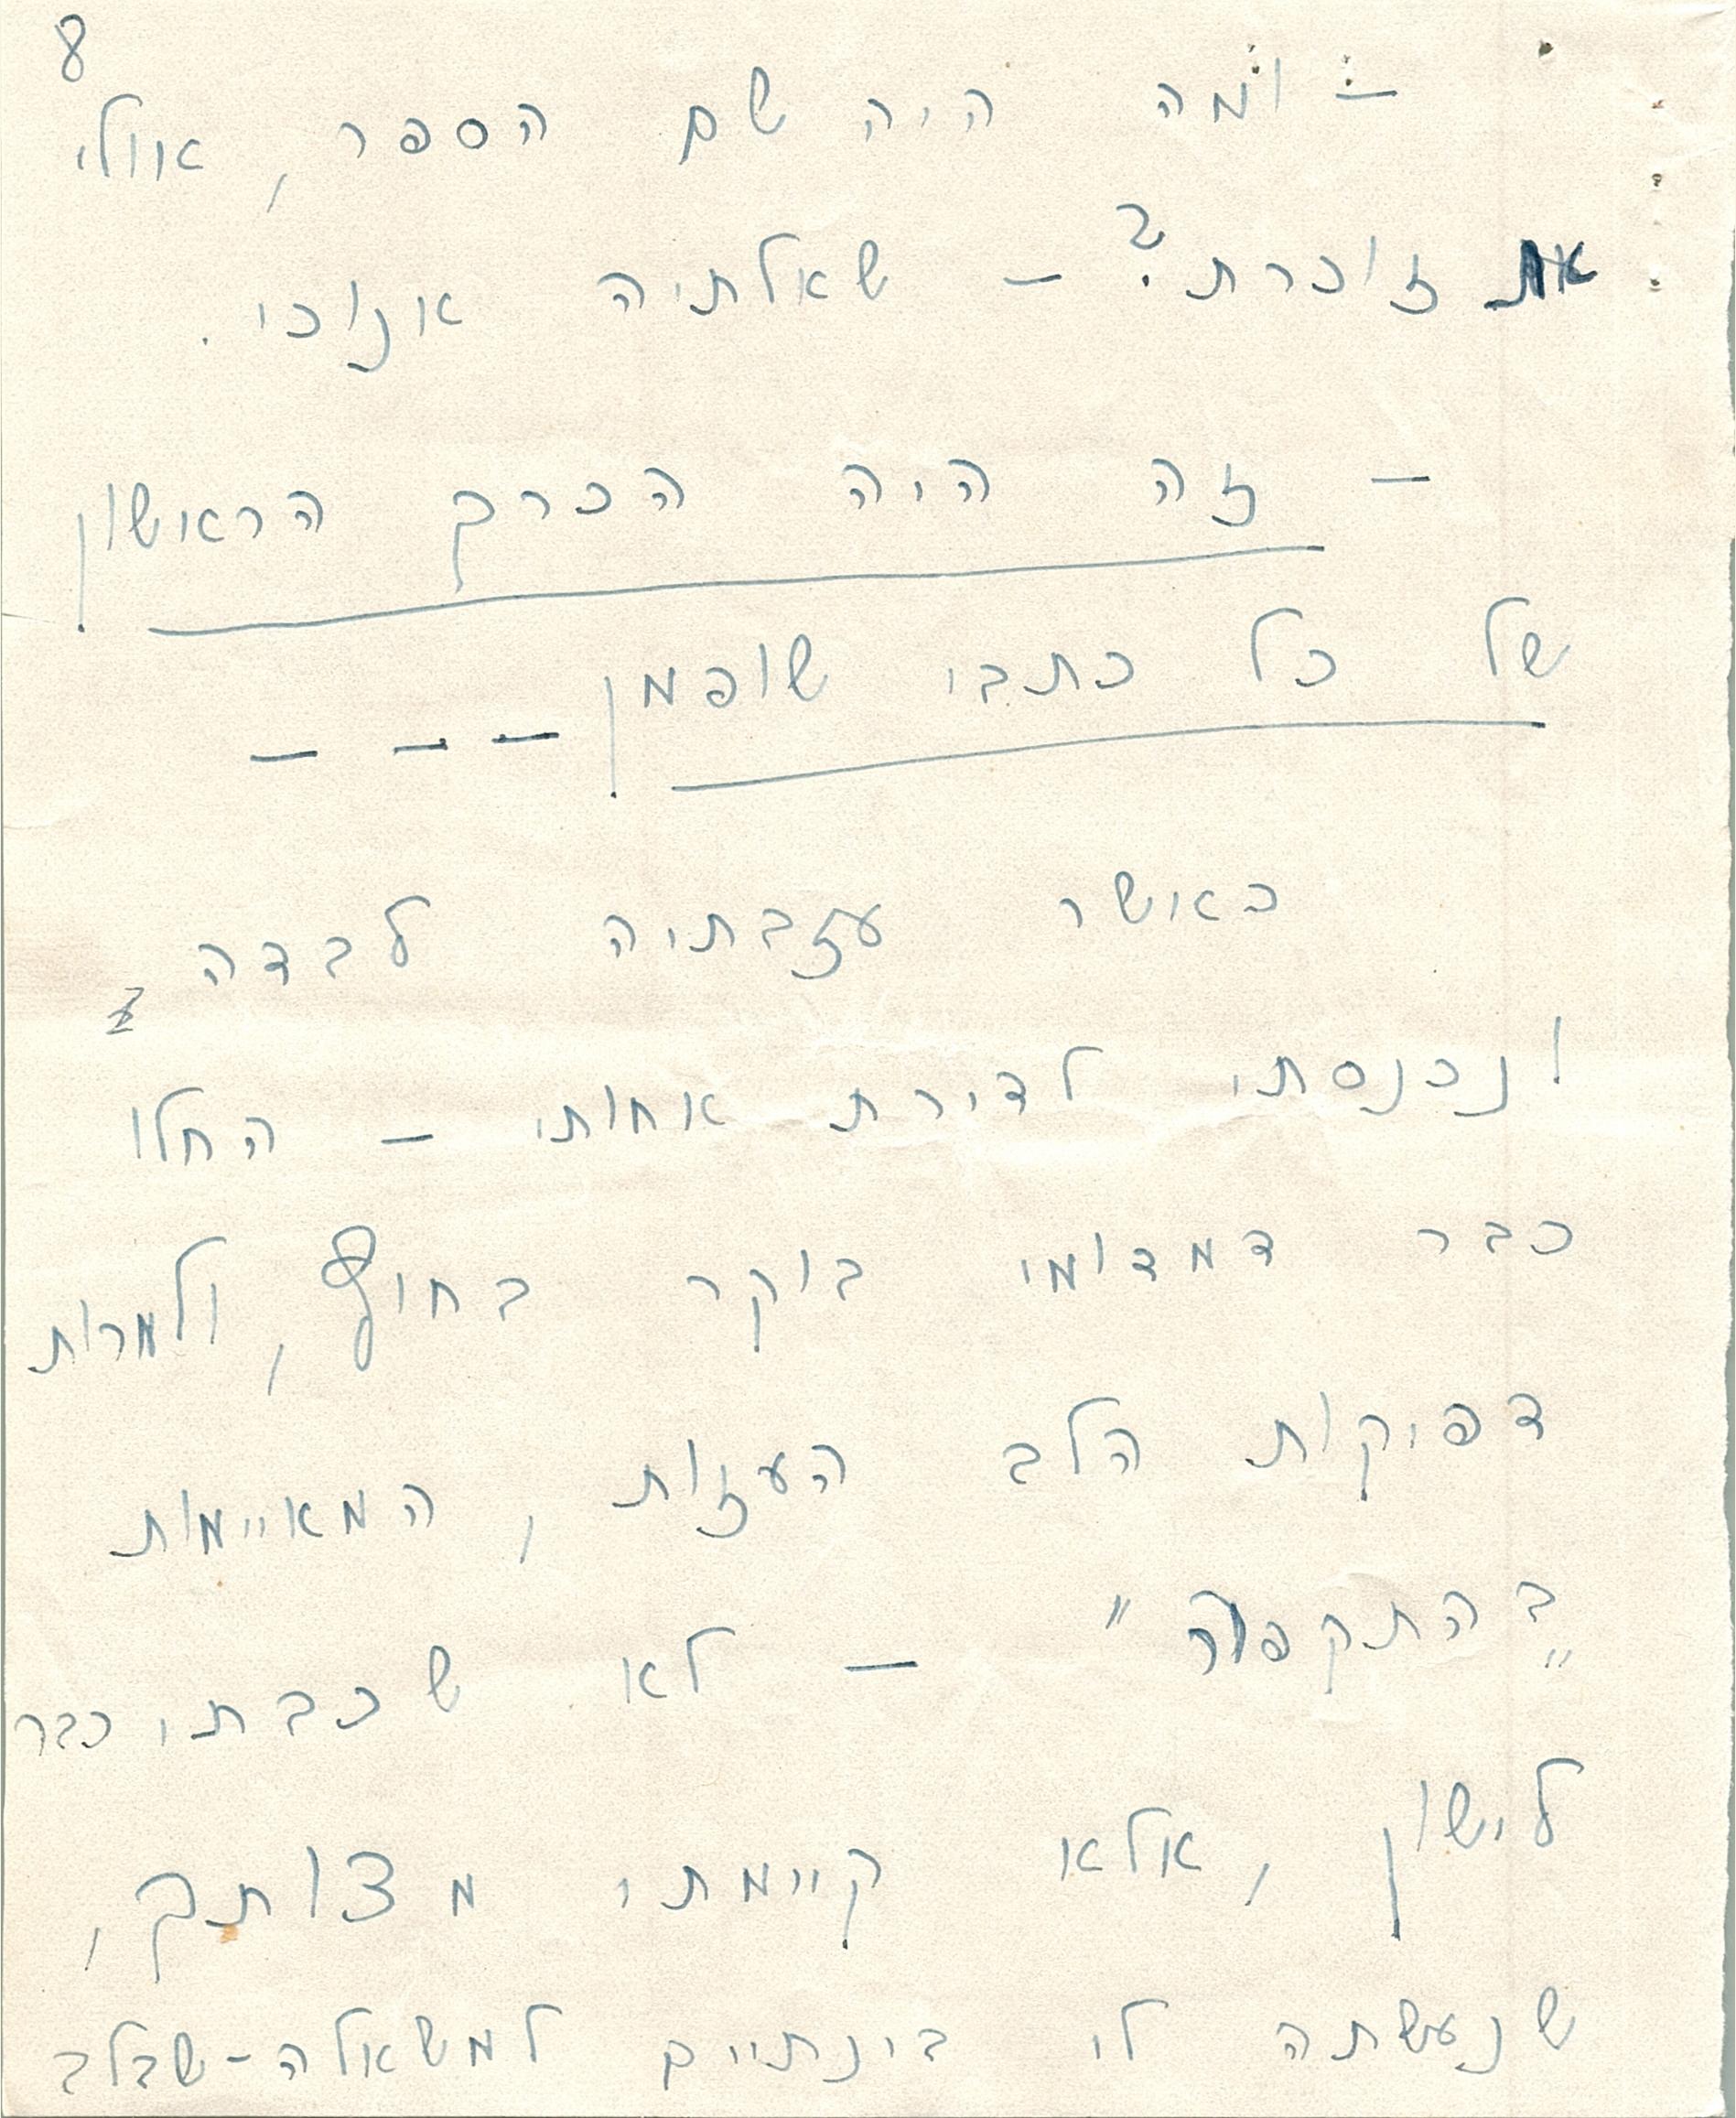 8
– ומה היה שם הספר, אולי
את זוכרת? – שאלתיה אנוכי.
– זה היה הכרך הראשון
של כל כתבי שופמן – – –
כאשר עזבתיה לבדה
ונכנסתי לדירת אחותי – החלו
כבר דמדומי בוקר בחוץ, ולמרות
דפיקות הלב העזות, המאיימות
"בהתקפה" – לא שכבתי כבר
לישון, אלא קיימתי מצותך,
שנעשתה לי בינתיים למשאלה-שבלב